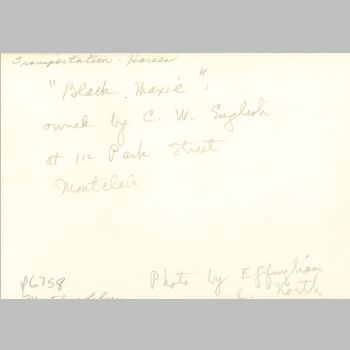 Transportation - Horses
"Black Maxie",
owned by C. W. English
at 112 Park Street
Montclair
Photo by Effingham
North
P6758